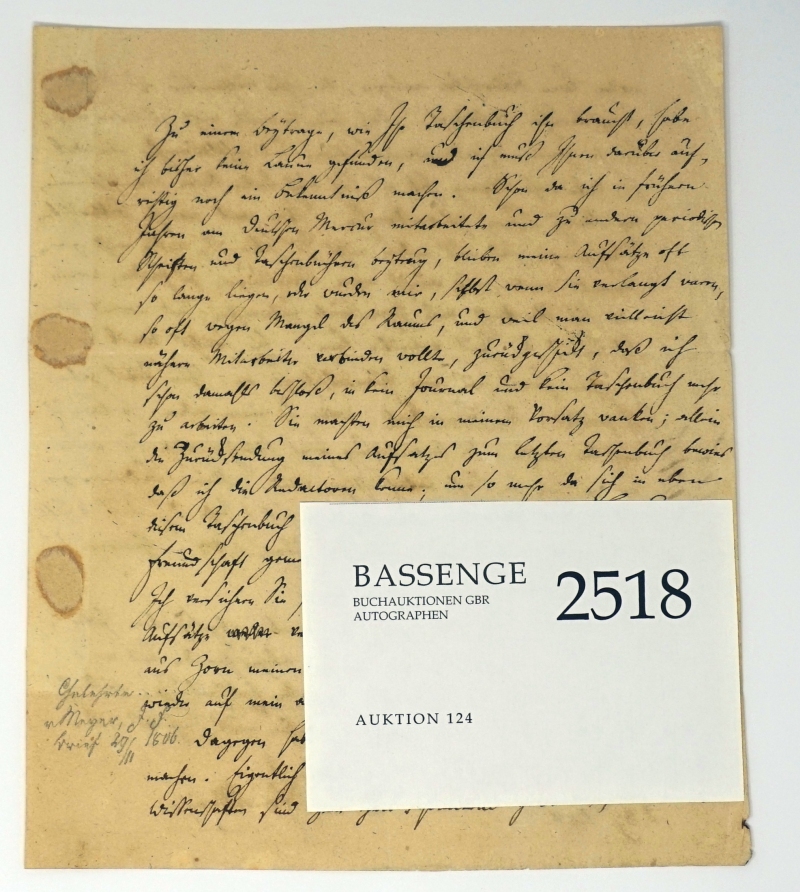 Zu einem Beytrage, wie Ihr Taschenbuch ihn braucht, habe
ich bisher keine Laune gefunden, und ich muß Ihnen darüber auf-
richtig noch ein Bekenntniß machen. Schon da ich in frühern
Jahren am Deutschen Mercur mitarbeitete und zu andern periodischen
Schriften und Taschenbüchern beytrug, blieben meine Aufsätze oft
so lange liegen, oder wurden mir, selbst wenn sie verlangt waren,
so oft wegen Mangel des Raums, und weil man vielleicht
nähere Mitarbeiter verbinden wollte, zurückgeschickt, daß ich
schon damahls beschloß, in kein Journal und kein Taschenbuch mehr
zu arbeiten. Sie machten mich in meinem Vorsatz wanken; allein
die Zurücksendung meines Aufsatzes zum letzten Taschenbuch bewies
daß ich die Redactoren kenne; um so mehr da sich in eben
diesem Taschenbuch
Freundschaft
Ich versichere Sie
Aufsätze
aus Zorn meinen
wieder auf mein
Dagegen
machen. Eigentlich
Wissenschaften sind
Gelehrte
v Meyer, J. F.
Brief 29/11 1806.
BASSENGE
BUCHAUKTIONEN GBR
AUTOGRAPHEN
2518
AUKTION 124